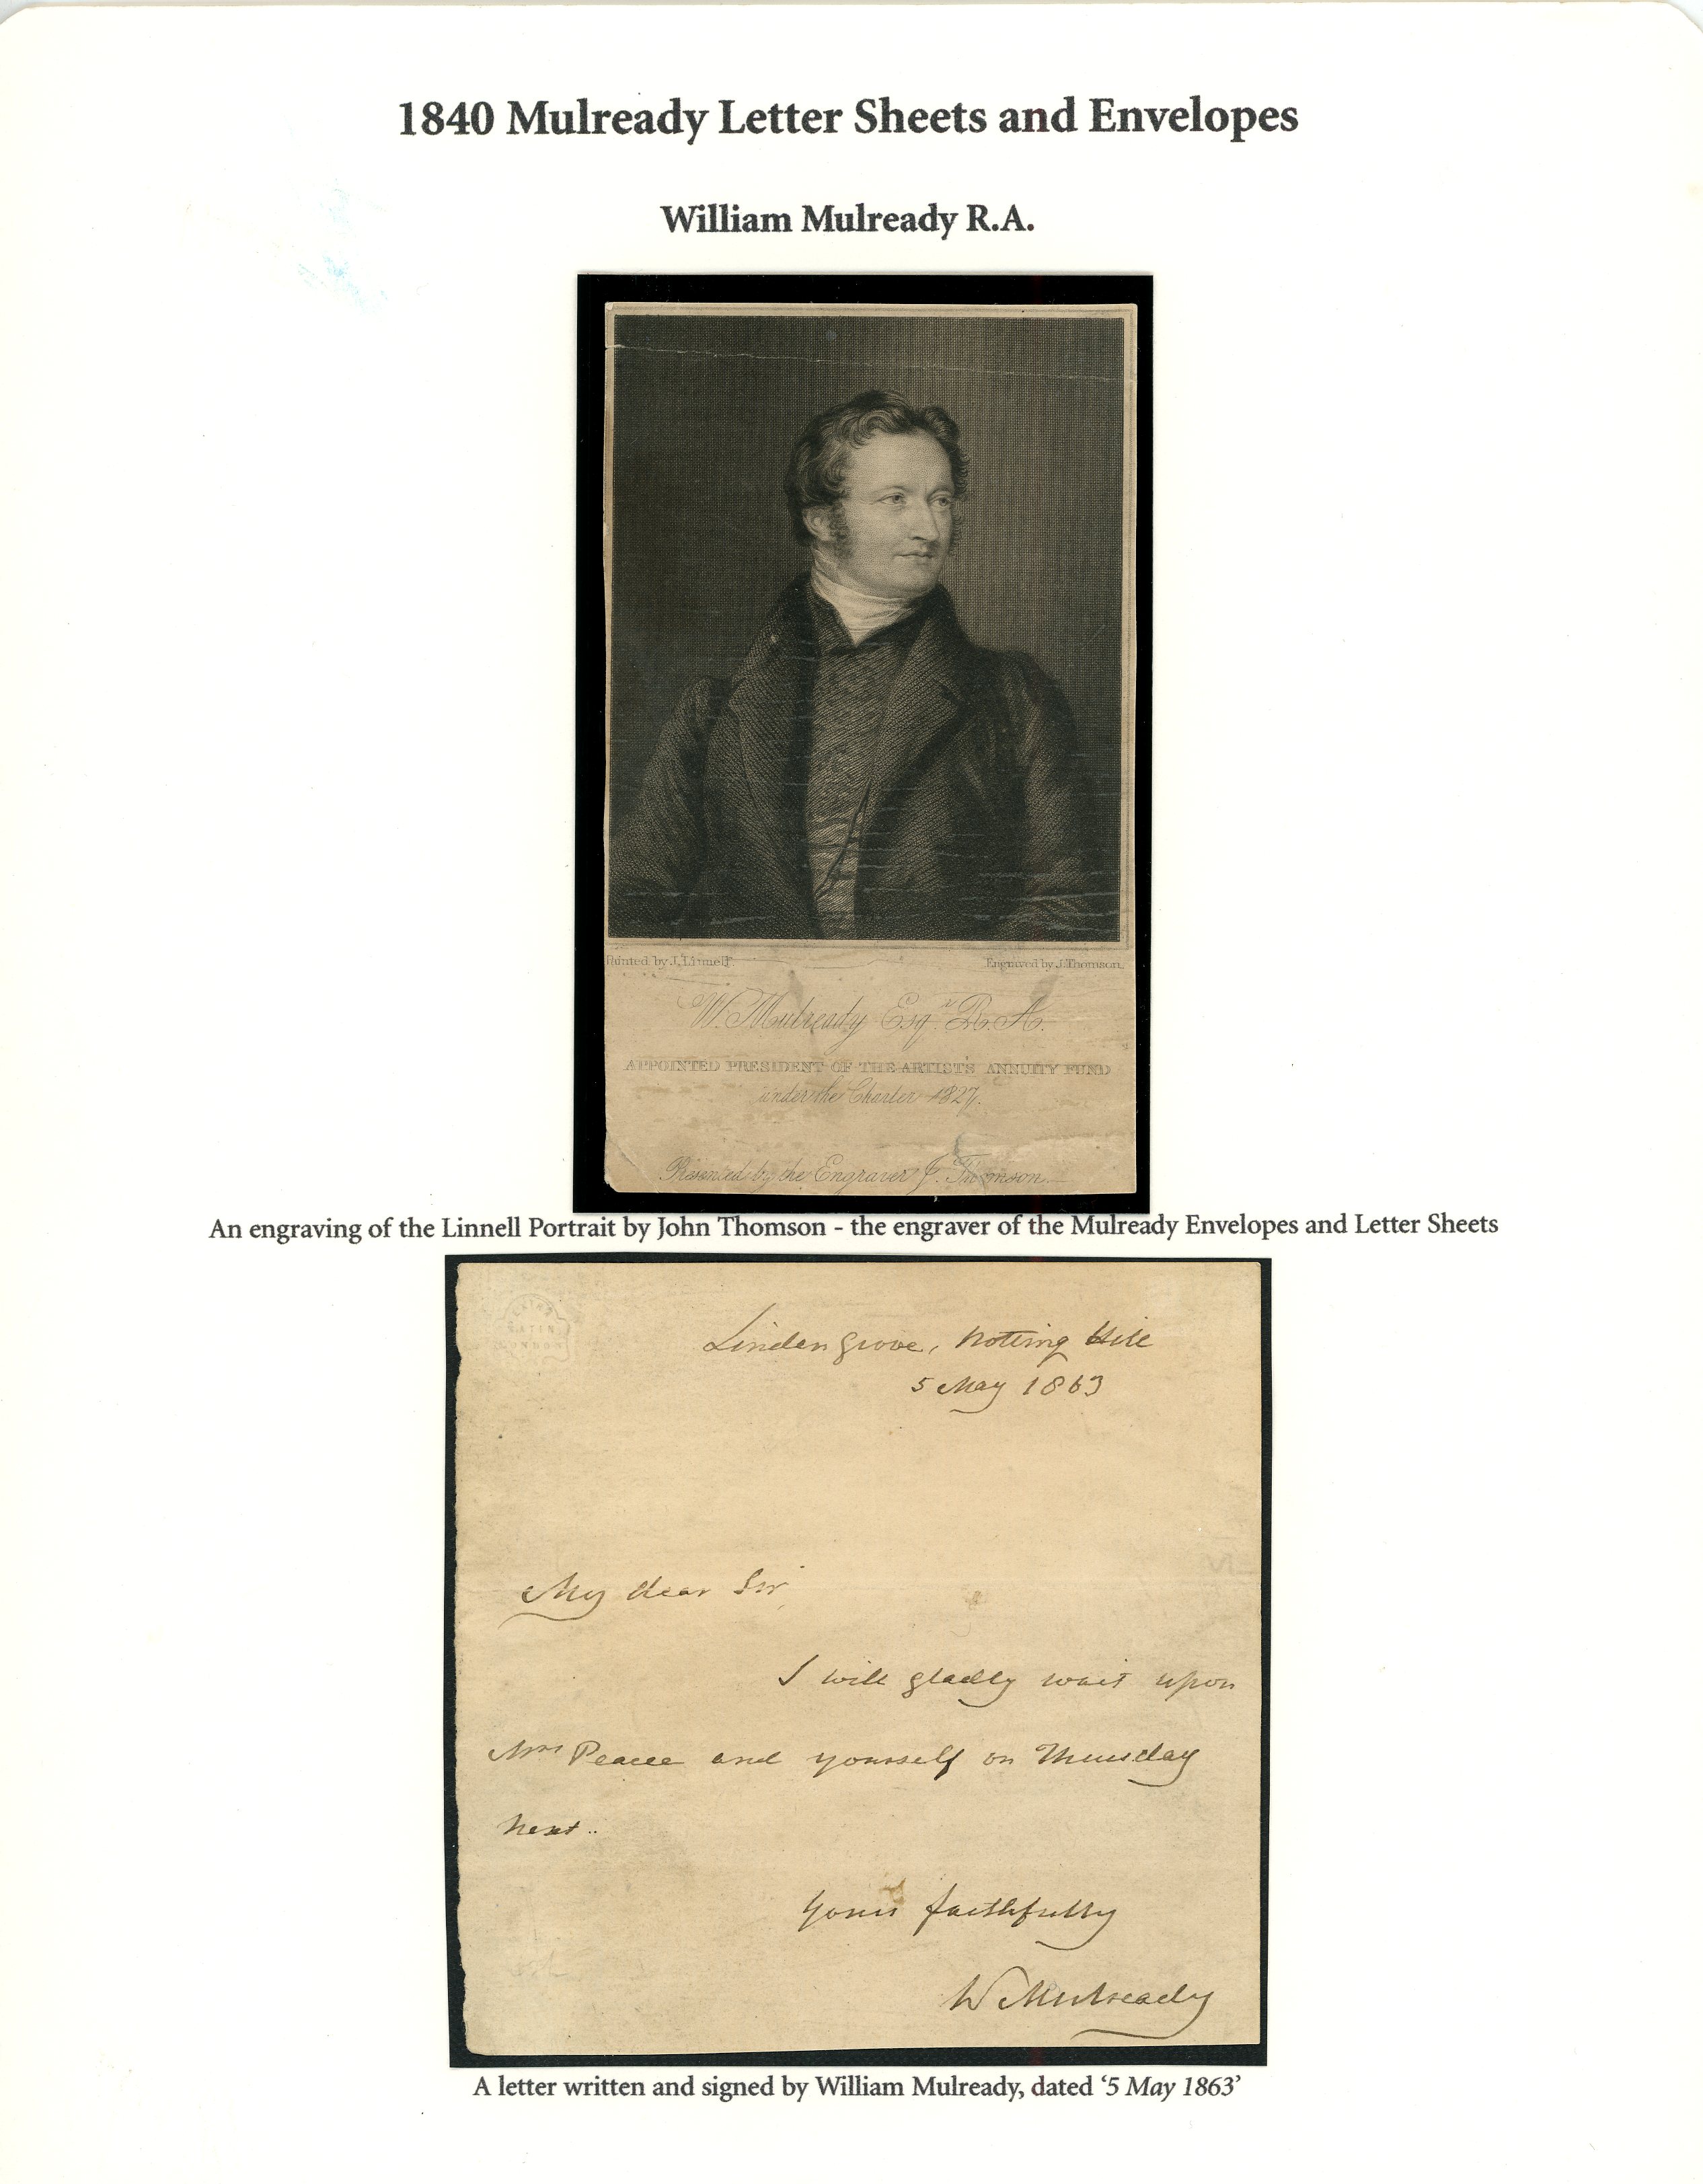 1840 Mulready Letter Sheets and Envelopes
William Mulready R.A.
Painted by J. Linnell.
Engraved by J. Thomson.
W. Mulready Esqr. R. A.
APPOINTED PRESIDENT OF THE ARTIST'S ANNUITY FUND
under the Charter 1827.
Presented by the Engraver J. Thomson.
An engraving of the Linnell Portrait by John Thomson - the engraver of the Mulready Envelopes and Letter Sheets
SATIN
Linden Grove, Notting Hill
5 May 1863
My dear Sir,
I will gladly wait upon
Mrs and yourself on Thursday
next..
Yours faithfully
W Mulready
A letter written and signed by William Mulready, dated ‘5 May 1863’